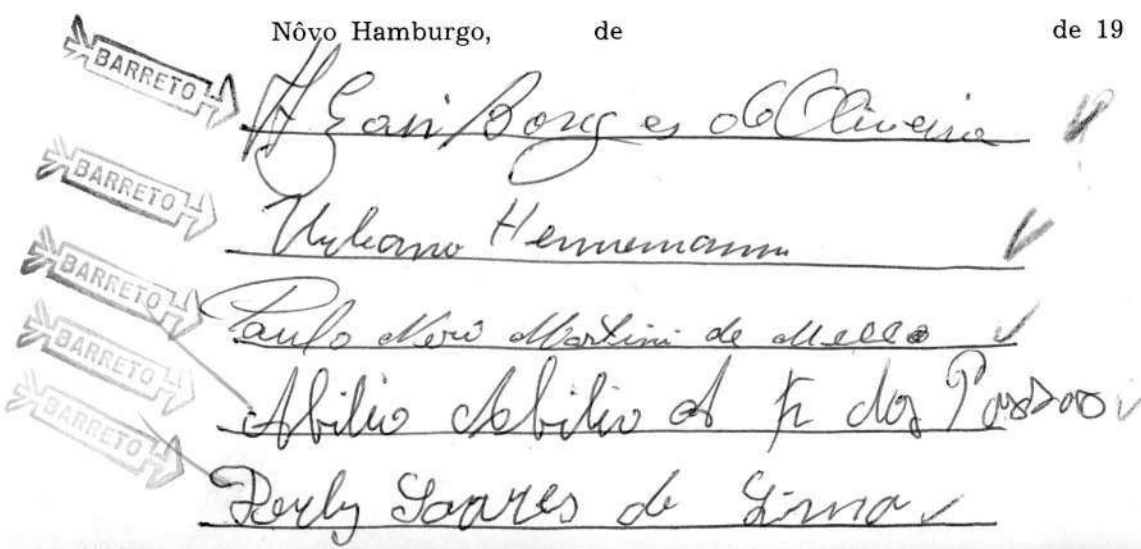 Nôvo Hamburgo, de de 19
BARRETO
Borges de Oliveira
BARRETO
Urbano Hennemann
BARRETO
Paulo Neri Martini de Mello
BARRETO
Abilio Abilio A dos Passos
BARRETO
Soares de Lima